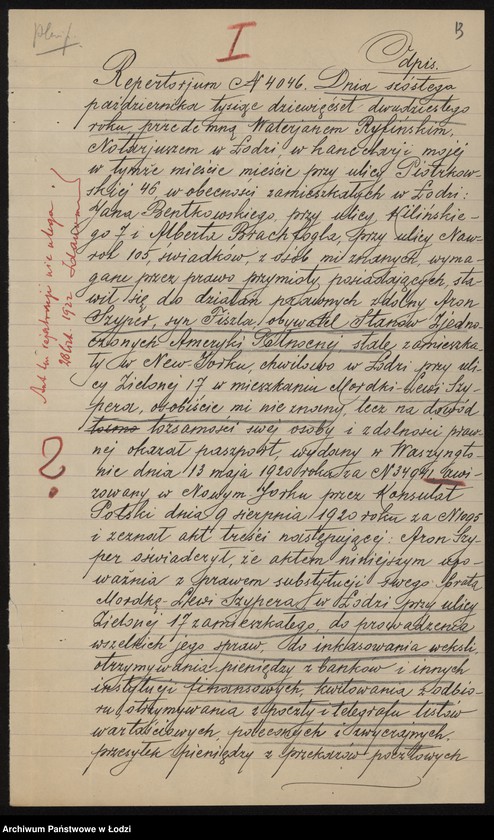 I
B
Odpis.
Repertorjum N 4046. Dnia szóstego
października tysiąc dziewięćset dwudziestego
roku, przede mną Walerjanem Ryfińskim,
Notarjuszem w Łodzi w kancelarji mojej
w tymże mieście mieście przy ulicy Piotrkow-
skiej 46 w obecności zamieszkałych w Łodzi:
Jana Bentkowskiego, przy ulicy Kilińskie-
go 7 i Alberta Brachfogla, przy ulicy Naw-
rot 105, świadków, z osób mi znanych, wyma-
gane przez prawo przymioty posiadających, sta-
wił się do działań prawnych zdolny Aron
Szyper, syn Fiszla, obywatel Stanów Zjedno-
czonych Ameryki Północnej stale, zamieszka-
ły w New-Yorku, chwilowo w Łodzi przy uli-
cy Zielonej 17 w mieszkaniu Mordki-Lewi Szy-
pera, osobiście mi nieznany, lecz na dowód
tożsamości swej osoby i zdolności praw-
nej okazał paszport, wydany w Waszyngto-
nie dnia 13 maja 1920 roku za N 34091, awi-
zowany w Nowym-Yorku przez Konsulat
Polski dnia 9 sierpnia 1920 roku za N 1095
i zeznał akt treści następującej: Aron Szy-
per oświadczył, że aktem niniejszym upo-
ważnia z prawem substytucji swego brata
Mordkę-Lewi Szypera, w Łodzi przy ulicy
Zielonej 17 zamieszkałego, do prowadzenia
wszelkich jego spraw, do inkasowania weksli,
otrzymywania pieniędzy z banków i innych
instytucji finansowych, kwitowania z odbio-
ru, otrzymywania z poczty i telegrafu listów
wartościowych, poleconych i zwyczajnych,
przesyłek pieniędzy z przekazów pocztowych
Akt ten rejestracji nie ulega
1922
?
Archiwum Państwowe w Łodzi